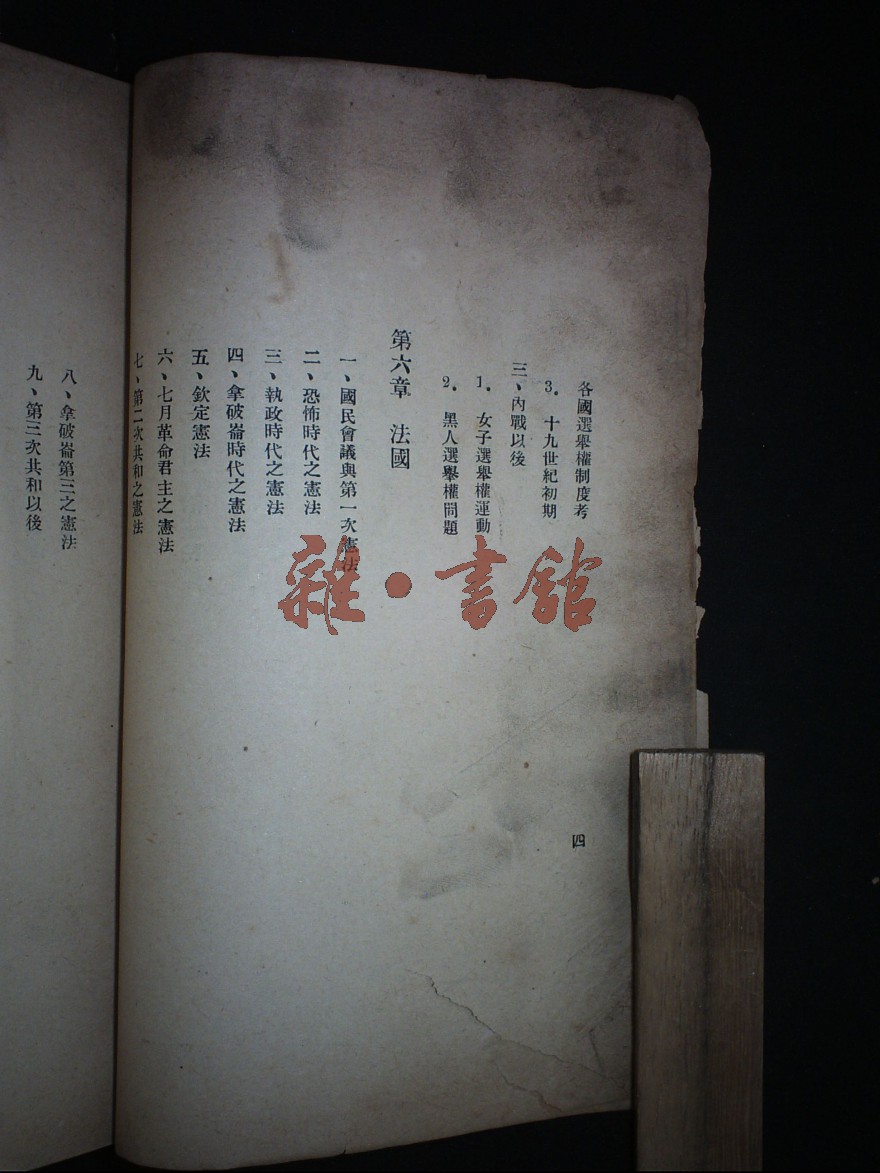 各國選舉權制度考
3. 十九世紀初期
三、內戰以後
1. 女子選舉權運動
2. 黑人選舉權問題
第六章 法國
一、國民會議與第一次憲法
二、恐怖時代之憲法
三、執政時代之憲法
四、拿破崙時代之憲法
五、欽定憲法
六、七月革命君主之憲法
七、第二次共和之憲法
四
八、拿破崙第三之憲法
九、第三次共和以後
雜·書館